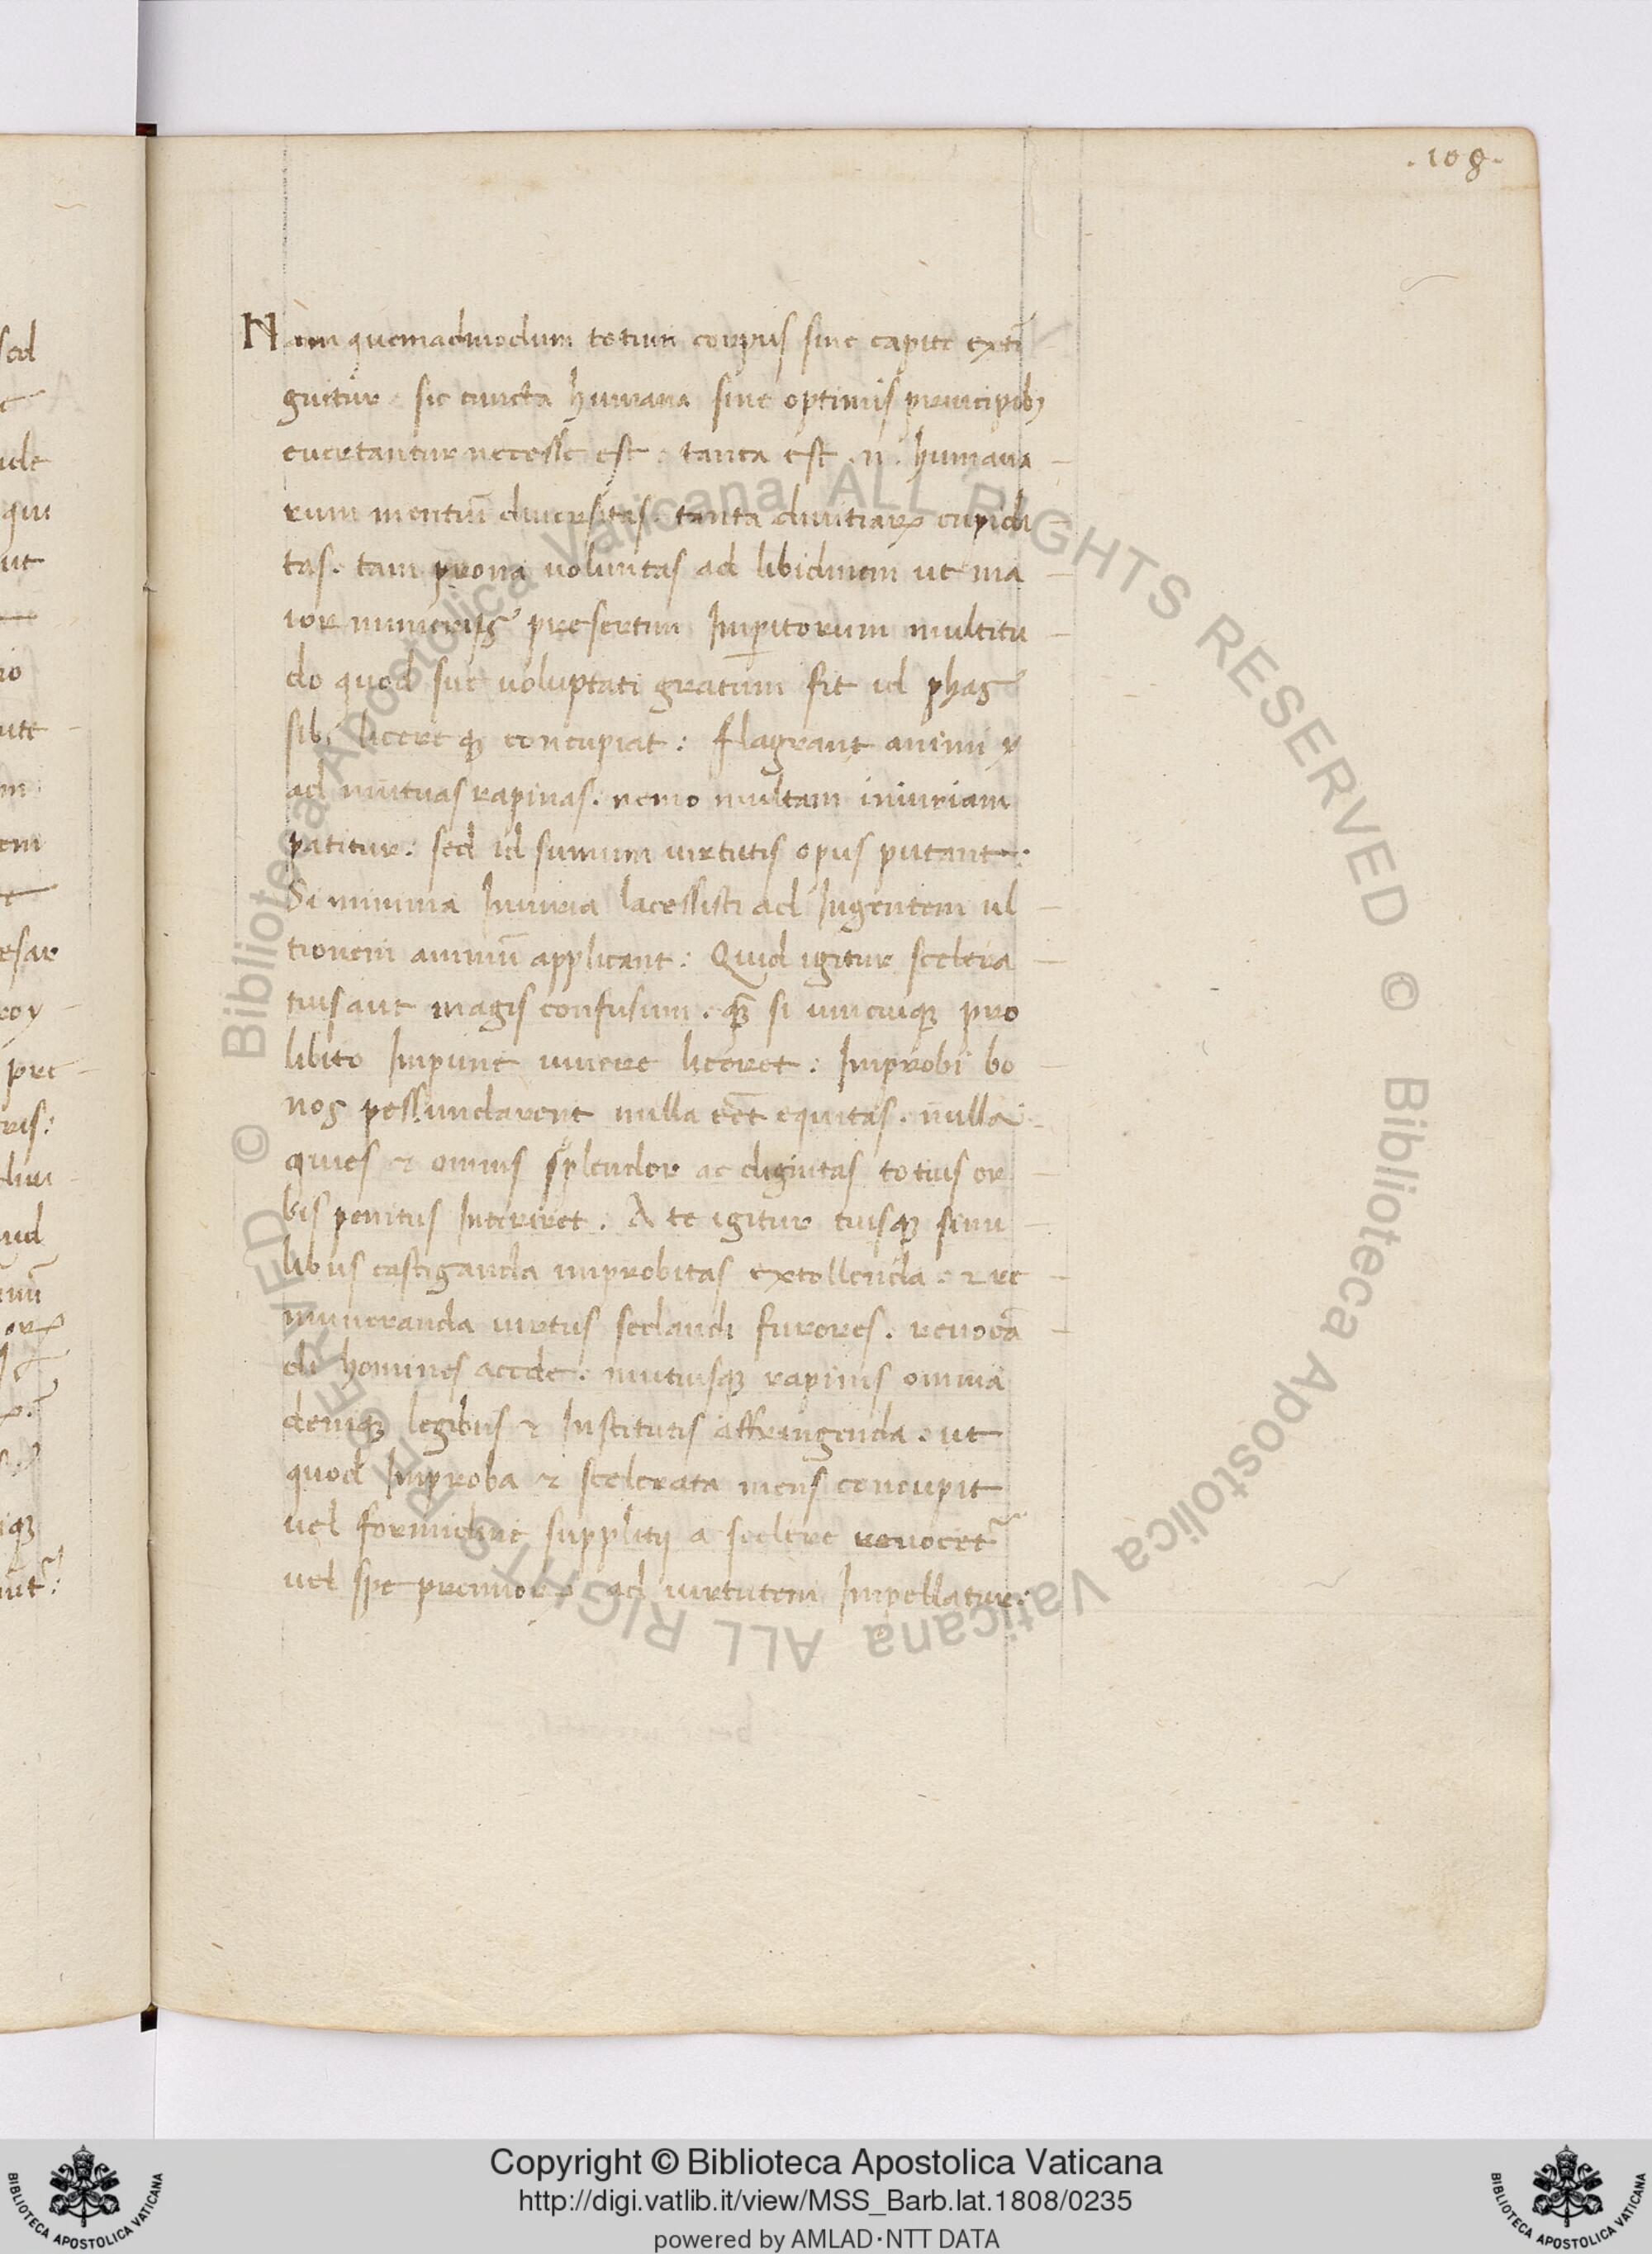 .108.
Nam quemadmodum totum corpus sine capite extī
guitur sic cuncta humana sine optimis principibꝫ
euertantur necesse est. tanta est .n. humana
rum mentiū diuersitas. tanta diuitiaꝝ cupidi
tas. tam prona voluntas ad libidinem ut ma
ior numerus presertim Imperitorum multitu
do quod sue voluptati gratum sit id phas
sibi licere qꝫ concupiat: flagrant animi
ad mutuas rapinas. nemo multam iniuriam
patitur: sed id sumum uirtutis opus putant:
Si minima Iniuria lacessisti ad Ingentem ul
tionem animū applicant: Quid igitur scelera
tius aut magis confusum. qꝫ si unicuiqꝫ pro
libito Impune uiuere liceret: Improbi bo
nos pessundarent nulla eēt equitas. nulla
quies ⁊ omnis splendor ac dignitas totius or
bis penitus Interiret. A te igitur tuisqꝫ simi
libus castiganda improbitas extollenda. ⁊ re
muneranda uirtus sedandi furores. reuocā
di homines a cede. mutuisqꝫ rapinis omnia
deniqꝫ legibus ⁊ Institutis affringenda. ut
quod Improba ⁊ scelerata mens concupit
uel formidine supplitij a scelere reuocet᷑
uel spe premioꝝ ad uirtutem Impellatur:
Copyright © Biblioteca Apostolica Vaticana
http://digi.vatlib.it/view/MSS_Barb.lat.1808/0235
powered by AMLAD·NTT DATA
© Biblioteca Apostolica Vaticana ALL RIGHTS RESERVED © Biblioteca Apostolica Vaticana ALL RIGHTS RESERVED
BIBLIOTECA APOSTOLICA VATICANA
BIBLIOTECA APOSTOLICA VATICANA